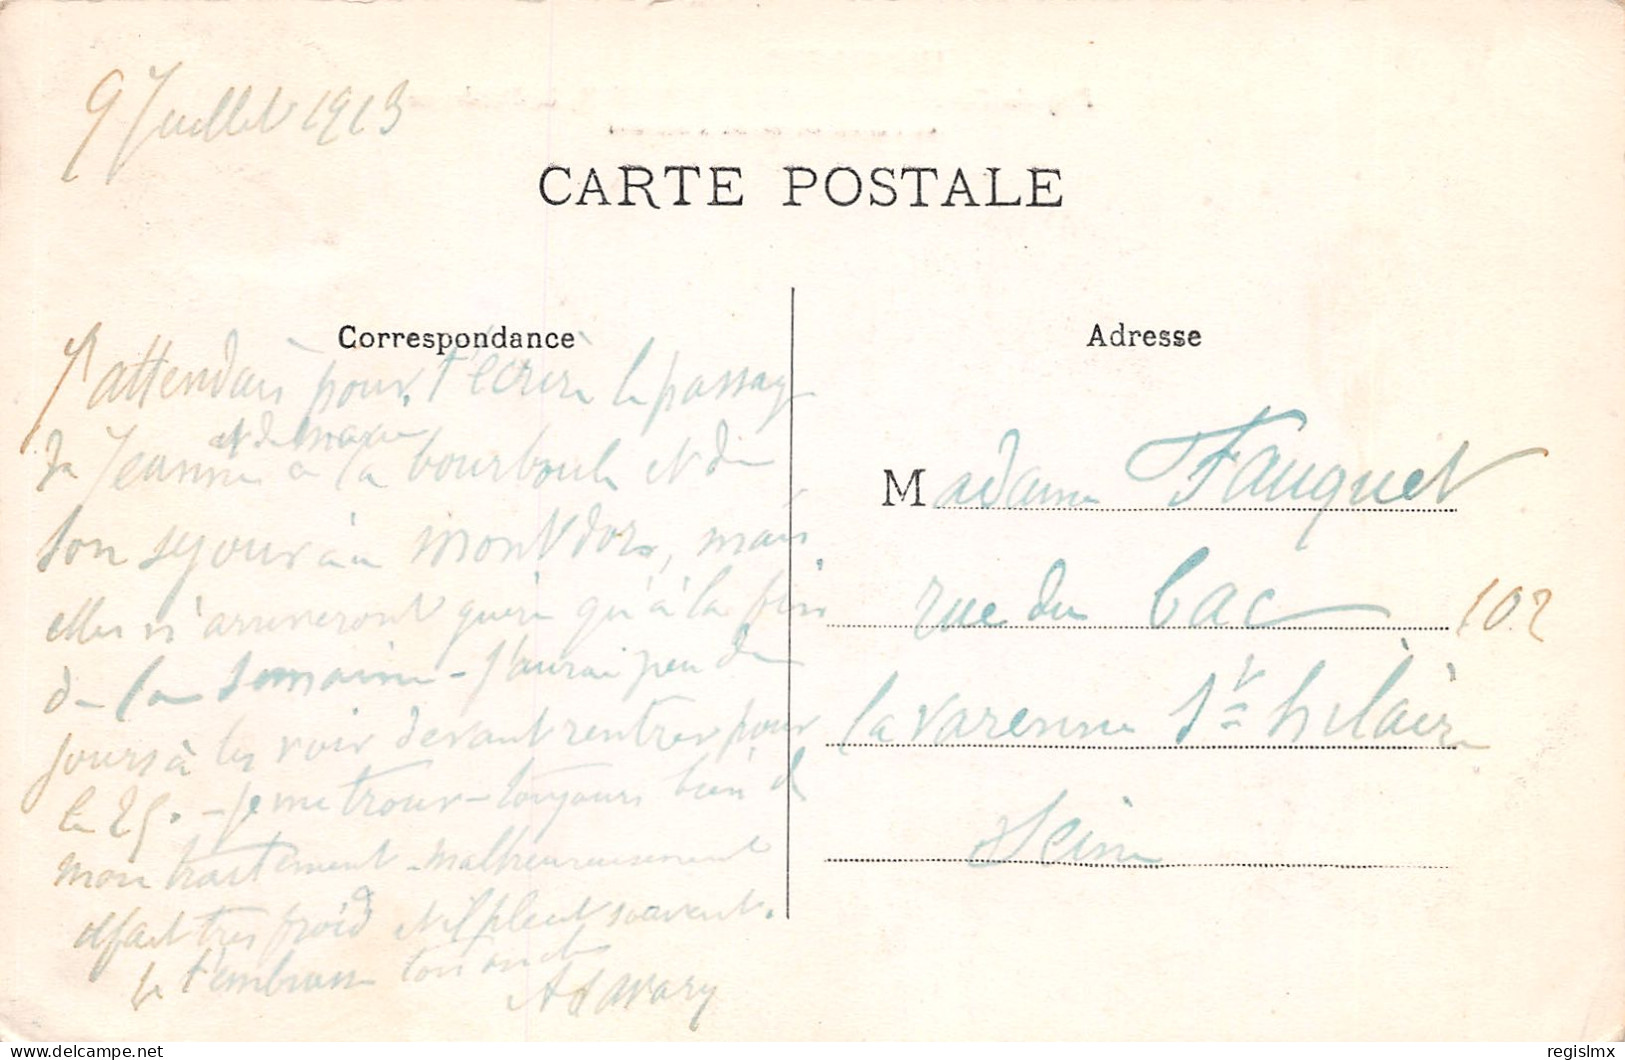 9 Juillet 1913
CARTE POSTALE
Correspondance
J'attendais pour t'écrire le passage
et de
de Jeanne à la bourboule et de
son séjour au mont dore, mais
elles n'arriveront guère qu'à la fin
de la semaine - J'aurai peu de
jours à les voir devant rentrer pour
le 25. - je me trouve toujours bien de
mon traitement - malheureusement
il fait très froid et il pleut souvent.
Je t'embrasse ton oncle
A Savary
Adresse
Madame Fauquet
rue du bac 102
la varenne St hilaire
Seine
regislmx
delcampe.net